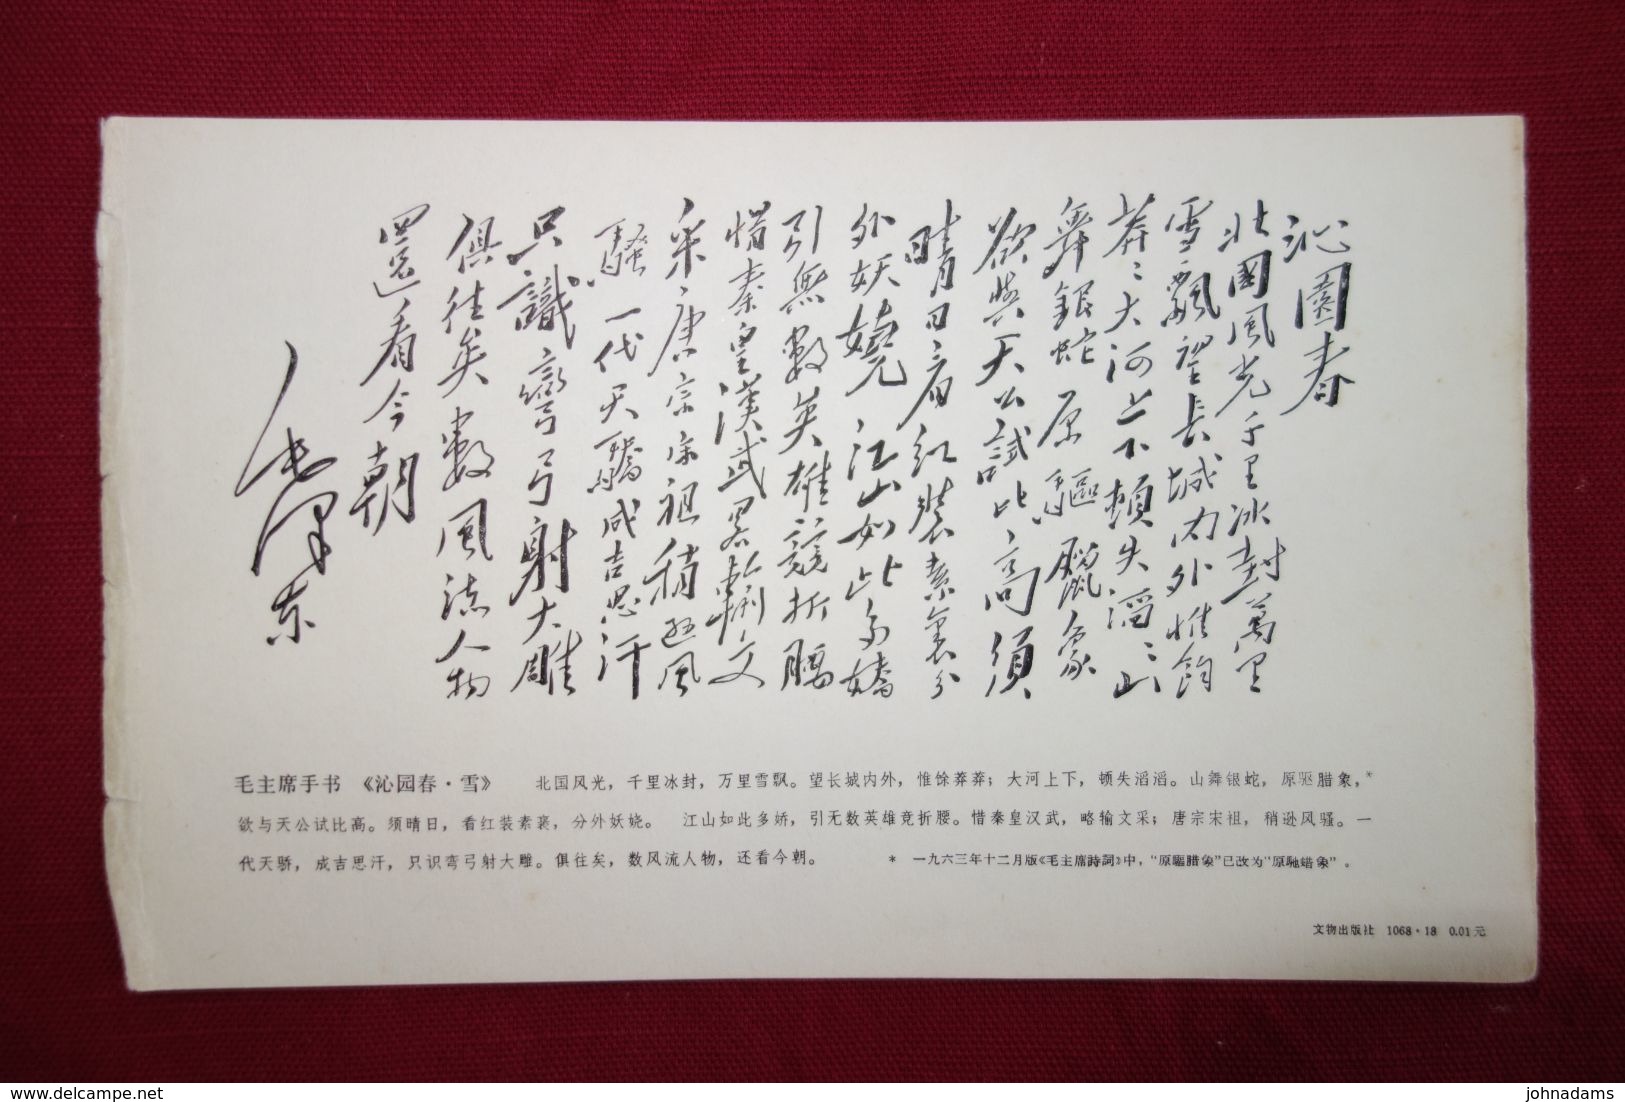 沁園春
北國風光千里冰封萬里
雪飄望長城內外惟餘
莽〻大河上下頓失滔〻山
舞銀蛇原驅臘象
欲與天公試比高須
晴日看紅裝素裹分
外妖嬈江山如此多嬌
引無數英雄競折腰
惜秦皇漢武畧輸文
采唐宗宋祖稍遜風
騷一代天驕成吉思汗
只識彎弓射大雕
俱往矣數風流人物
還看今朝
毛澤東
毛主席手书 《沁园春·雪》 北国风光，千里冰封，万里雪飘。望长城内外，惟馀莽莽；大河上下，顿失滔滔。山舞银蛇，原驱腊象，*
欲与天公试比高。须晴日，看红装素裹，分外妖娆。 江山如此多娇，引无数英雄竞折腰。惜秦皇汉武，略输文采；唐宗宋祖，稍逊风骚。一
代天骄，成吉思汗，只识弯弓射大雕。俱往矣，数风流人物，还看今朝。 * 一九六三年十二月版《毛主席詩詞》中，“原驅臘象”已改为“原馳蜡象”。
文物出版社 1068·18 0.01元
delcampe.net
johnadams